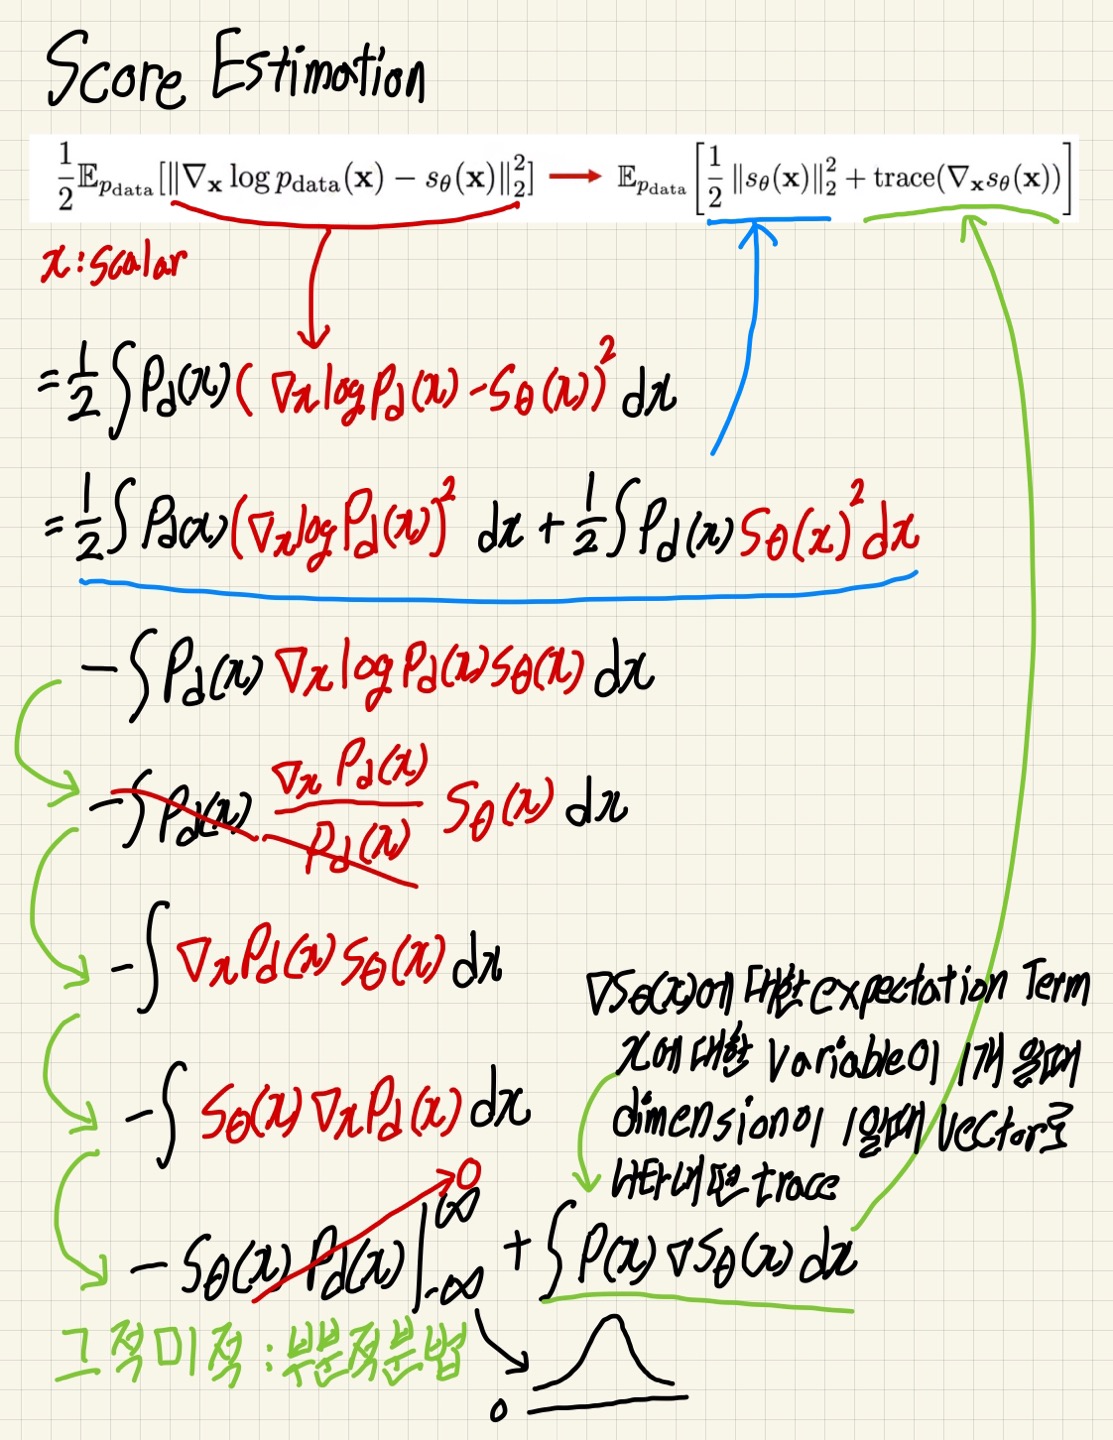 Score Estimation
½ 𝔼_{p_data}[‖∇_x log p_data(x) − s_θ(x)‖₂²] → 𝔼_{p_data}[½ ‖s_θ(x)‖₂² + trace(∇_x s_θ(x))]
x : scalar
= ½ ∫ P_d(x) ( ∇_x log P_d(x) - S_θ(x) )² dx
= ½ ∫ P_d(x) ( ∇_x log P_d(x) )² dx + ½ ∫ P_d(x) S_θ(x)² dx
- ∫ P_d(x) ∇_x log P_d(x) S_θ(x) dx
- ∫ P_d(x) ∇_x P_d(x) / P_d(x) S_θ(x) dx
- ∫ ∇_x P_d(x) S_θ(x) dx
∇S_θ(x)에 대한 expectation Term
x에 대한 Variable이 1개 일때
dimension이 1일때 Vector로
나타내면 trace
- ∫ S_θ(x) ∇_x P_d(x) dx
- S_θ(x) P_d(x) |_{-∞}^{∞} 0 + ∫ P(x) ∇S_θ(x) dx
그적미적 : 부분적분법
0